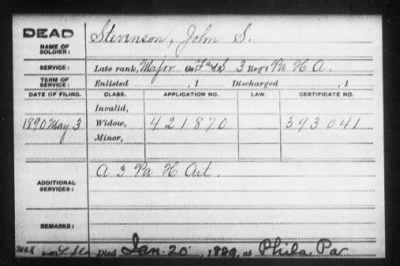 DEAD
NAME OF SOLDIER: Stevenson, John S.
SERVICE: Late rank, Major Co. F & S 3 Reg't Pa H A.
TERM OF SERVICE: Enlisted , 1 Discharged , 1
DATE OF FILING. CLASS. APPLICATION NO. LAW. CERTIFICATE NO.
Invalid,
1890 May 3 Widow, 421870 393041
Minor,
ADDITIONAL SERVICES: A 3 Pa H Art.
REMARKS:
Died Jan. 20, 1889, at Phila Pa